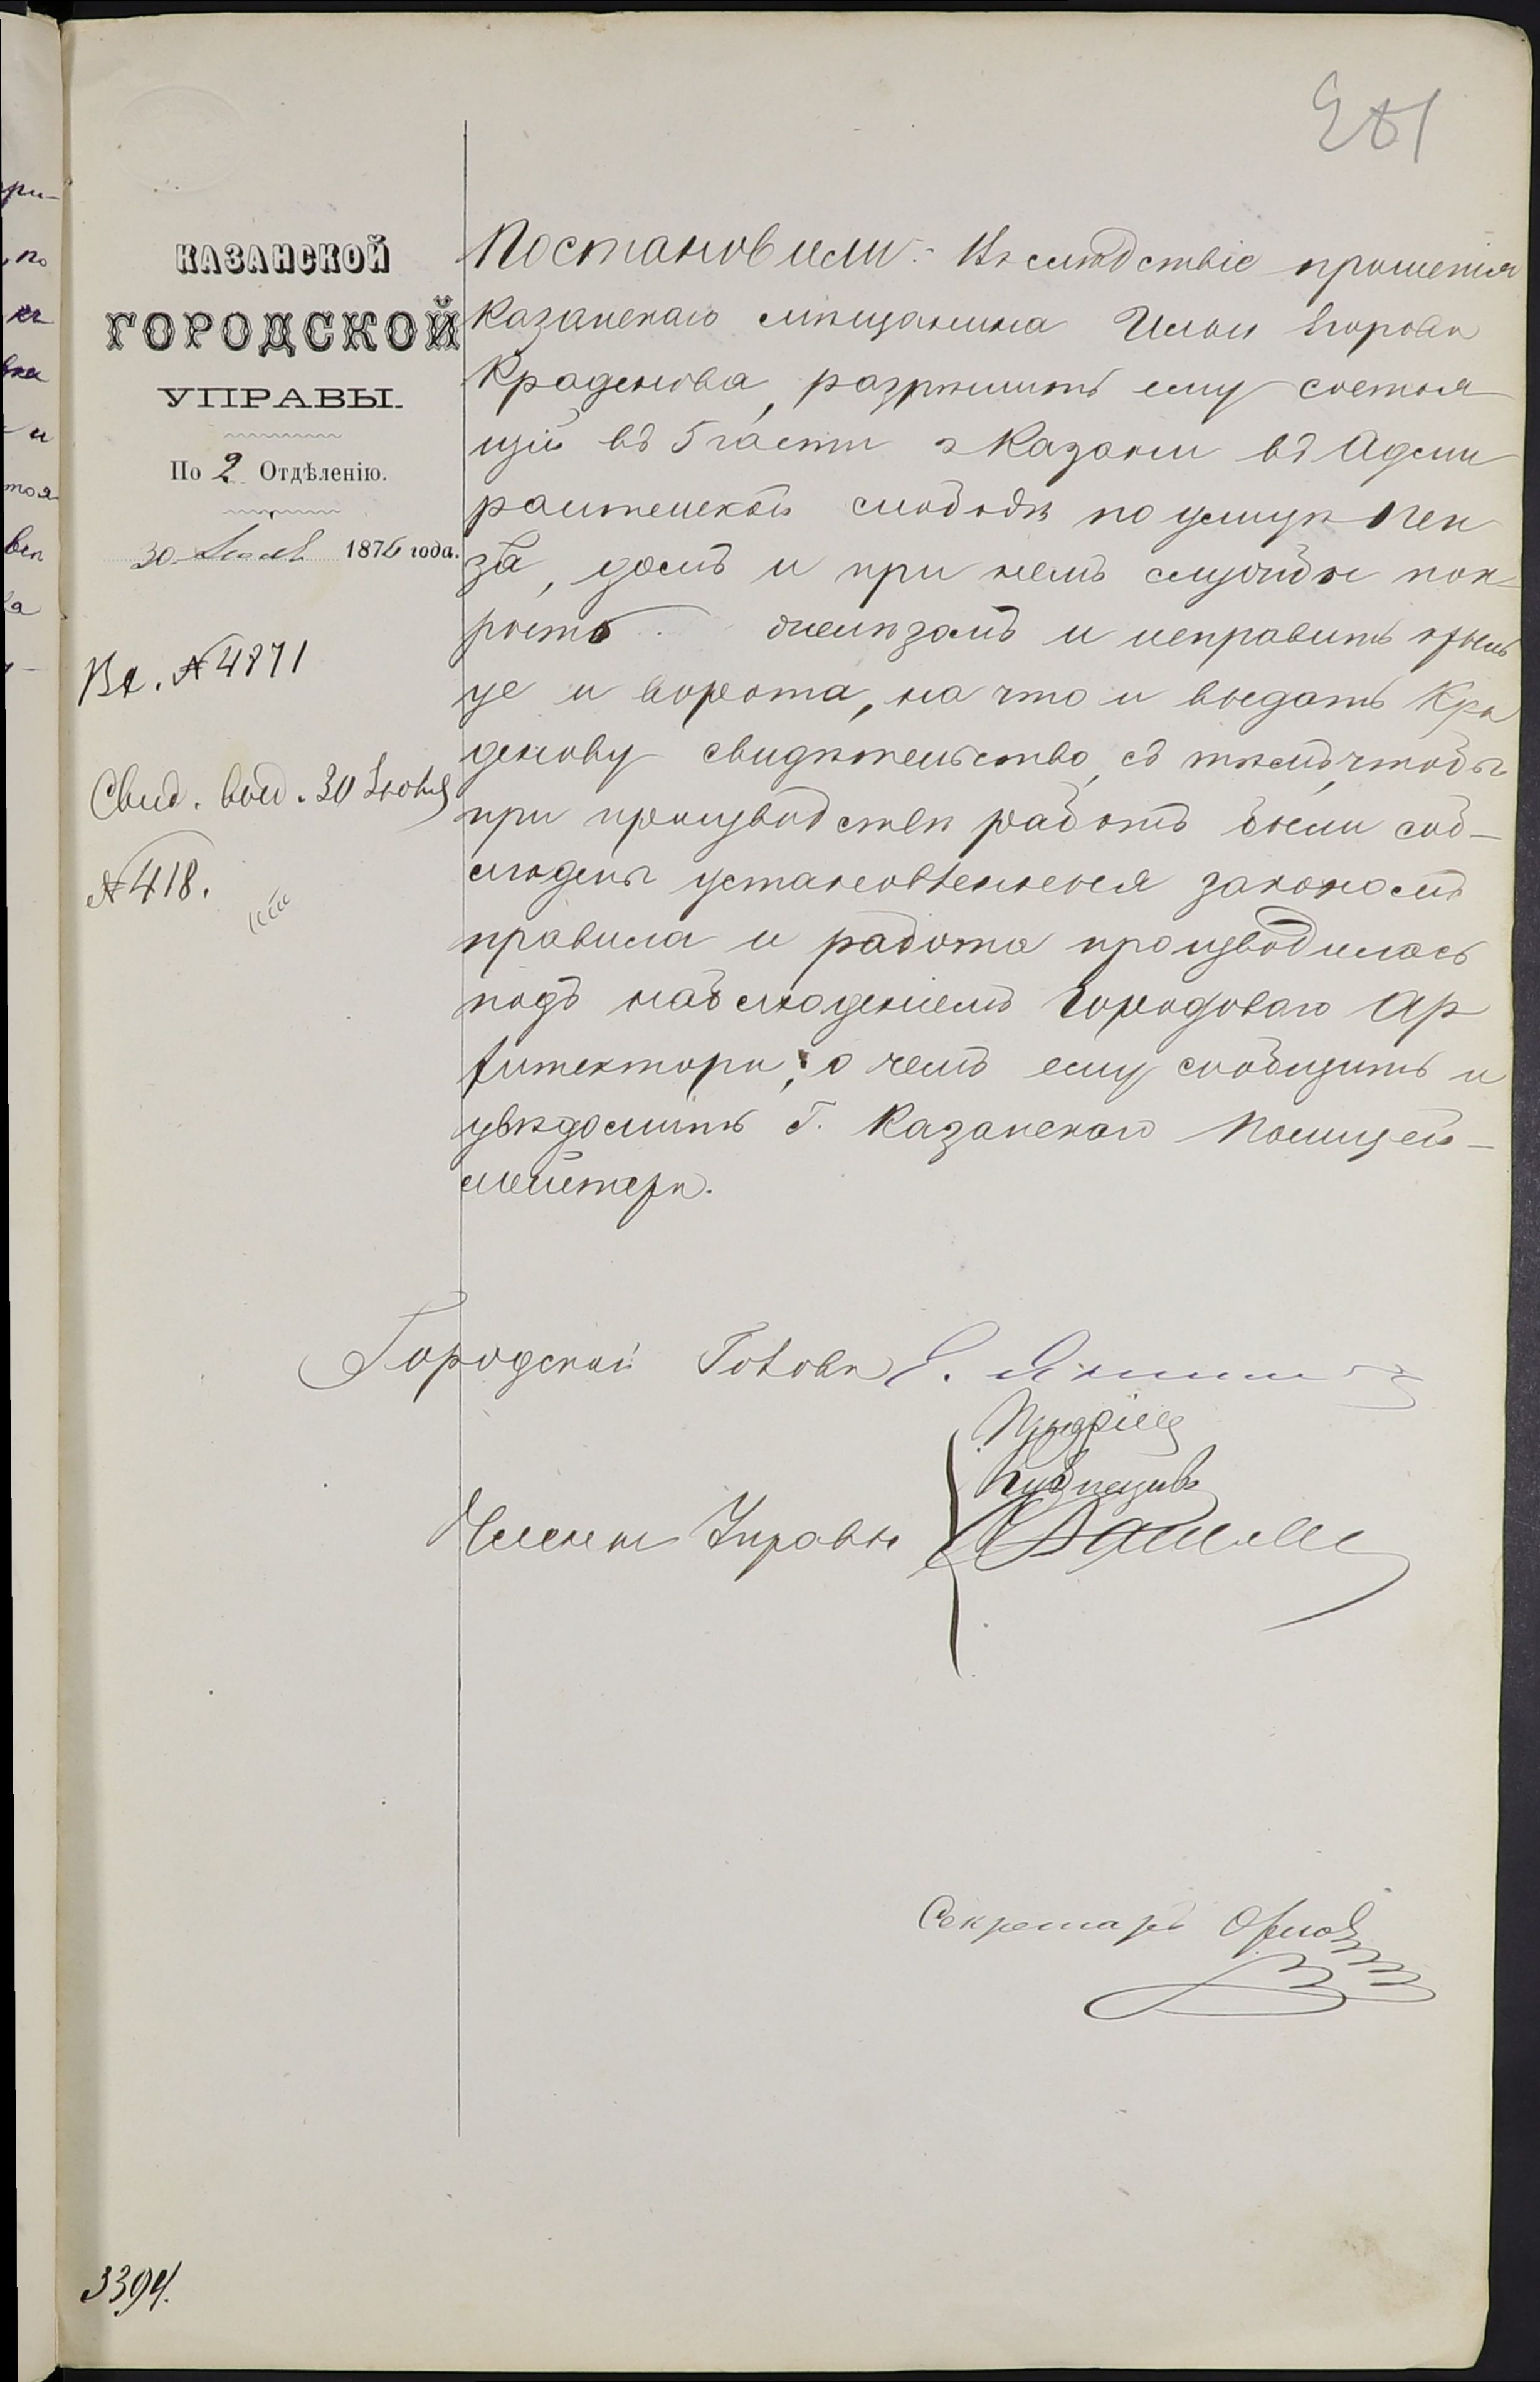 281
КАЗАНСКОЙ
ГОРОДСКОЙ
УПРАВЫ.
По 2 Отдѣленію.
30 1876 года.
Вх. № 4871
Свид. выд. 30 Іюня
№ 418.
Постановили: Въ слѣдствіе прошенія
Казанскаго мѣщанина Ильи Егорова
Краденова, разрѣшить ему состоя
щій въ 5 части г Казани въ Адми
ралтейской слободѣ по улицѣ Пен
за, домъ и при немъ службы пок-
рыть желѣзомъ и исправить крыль
це и ворота, на что и выдать Кра
денову свидѣтельство, съ тѣмъ, чтобы
при производствѣ работъ были соб-
людены установленныя закономъ
правила и работа производилась
подъ наблюденіемъ Городоваго Ар
хитектора; о чемъ ему сообщить и
увѣдомить Г. Казанскаго Полицей-
мейстера.
Городской Голова Е.
Члены Управы
Кузнецовъ
Секретарь Орловъ
3394.